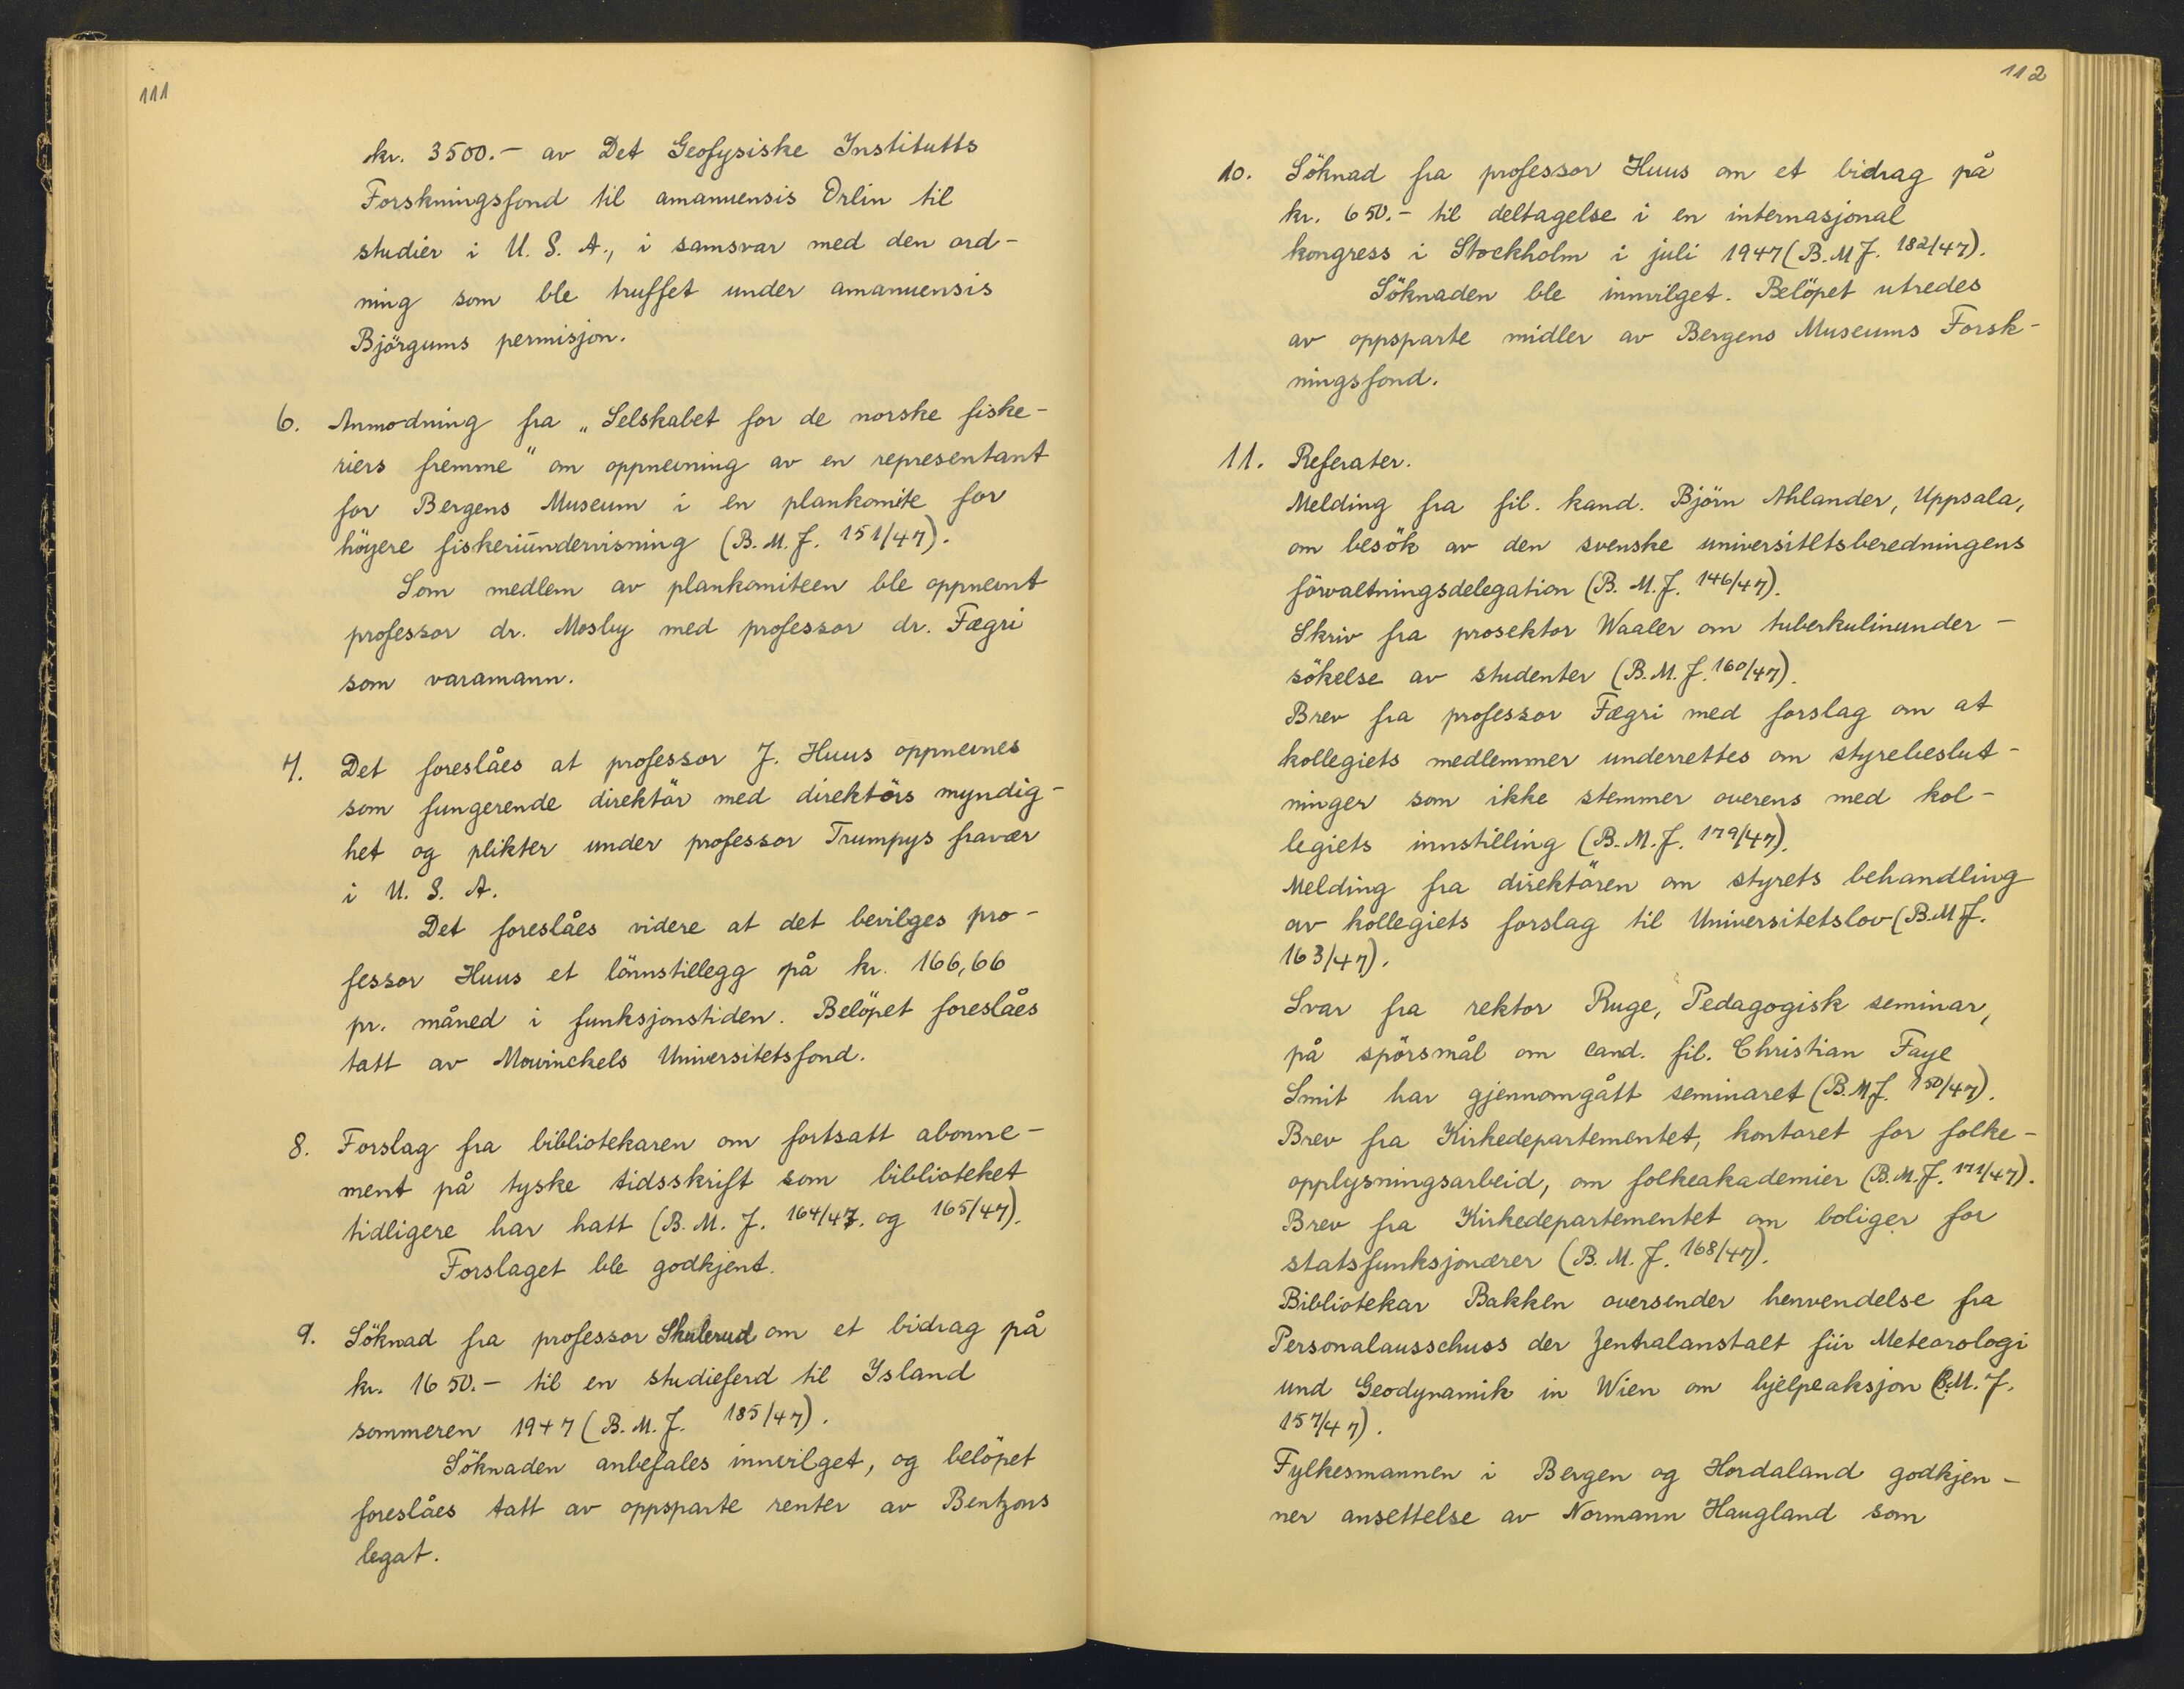 111
kr. 3500.- av Det Geofysiske Institutts
Forskningsfond til amanuensis Orlin til
studier i U. S. A., i samsvar med den ord-
ning som ble truffet under amanuensis
Björgums permisjon.
6. Anmodning fra „Selskabet for de norske fiske-
riers fremme" om oppnevning av en representant
for Bergens Museum i en plankomite for
höyere fiskeriundervisning (B. M. J. 151/47).
Som medlem av plankomiteen ble oppnevnt
professor dr. Mosby med professor dr. Fægri
som varamann.
7. Det foreslåes at professor J. Huus oppnevnes
som fungerende direktör med direktörs myndig-
het og plikter under professor Trumpys fravær
i U. S. A.
Det foreslåes videre at det bevilges pro-
fessor Huus et lönnstillegg på kr. 166,66
pr. måned i funksjonstiden. Belöpet foreslåes
tatt av Mowinckels Universitetsfond.
8. Forslag fra bibliotekaren om fortsatt abonne-
ment på tyske tidsskrift som biblioteket
tidligere har hatt (B. M. J. 164/47. og 165/47).
Forslaget ble godkjent.
9. Söknad fra professor Skulerud om et bidrag på
kr. 1650.- til en studieferd til Island
sommeren 1947 (B. M. J. 185/47).
Söknaden anbefales innvilget, og belöpet
foreslåes tatt av oppsparte renter av Bentzons
legat.
112
10. Söknad fra professor Huus om et bidrag på
kr. 650.- til deltagelse i en internasjonal
kongress i Stockholm i juli 1947 (B. M J. 182/47).
Söknaden ble innvilget. Belöpet utredes
av oppsparte midler av Bergens Museums Forsk-
ningsfond.
11. Referater.
Melding fra fil. kand. Björn Ahlander, Uppsala,
om besök av den svenske universitetsberedningens
förvaltningsdelegation (B. M. J. 146/47).
Skriv fra prosektor Waaler om tuberkulinunder-
sökelse av studenter (B. M. J. 160/47).
Brev fra professor Fægri med forslag om at
kollegiets medlemmer underrettes om styrebeslut-
ninger som ikke stemmer overens med kol-
legiets innstilling (B. M. J. 179/47).
Melding fra direktören om styrets behandling
av kollegiets forslag til Universitetslov (B. M J.
163/47).
Svar fra rektor Ruge, Pedagogisk seminar,
på spörsmål om cand. fil. Christian Faye
Smit har gjennomgått seminaret (B. M J. 150/47).
Brev fra Kirkedepartementet, kontoret for folke-
opplysningsarbeid, om folkeakademier (B. M. J. 171/47).
Brev fra Kirkedepartementet om boliger for
statsfunksjonærer (B. M. J. 168/47).
Bibliotekar Bakken oversender henvendelse fra
Personalausschuss der Zentralanstalt für Meteorologi
und Geodynamik in Wien om hjelpeaksjon (B. M. J.
157/47).
Fylkesmannen i Bergen og Hordaland godkjen-
ner ansettelse av Normann Haugland som